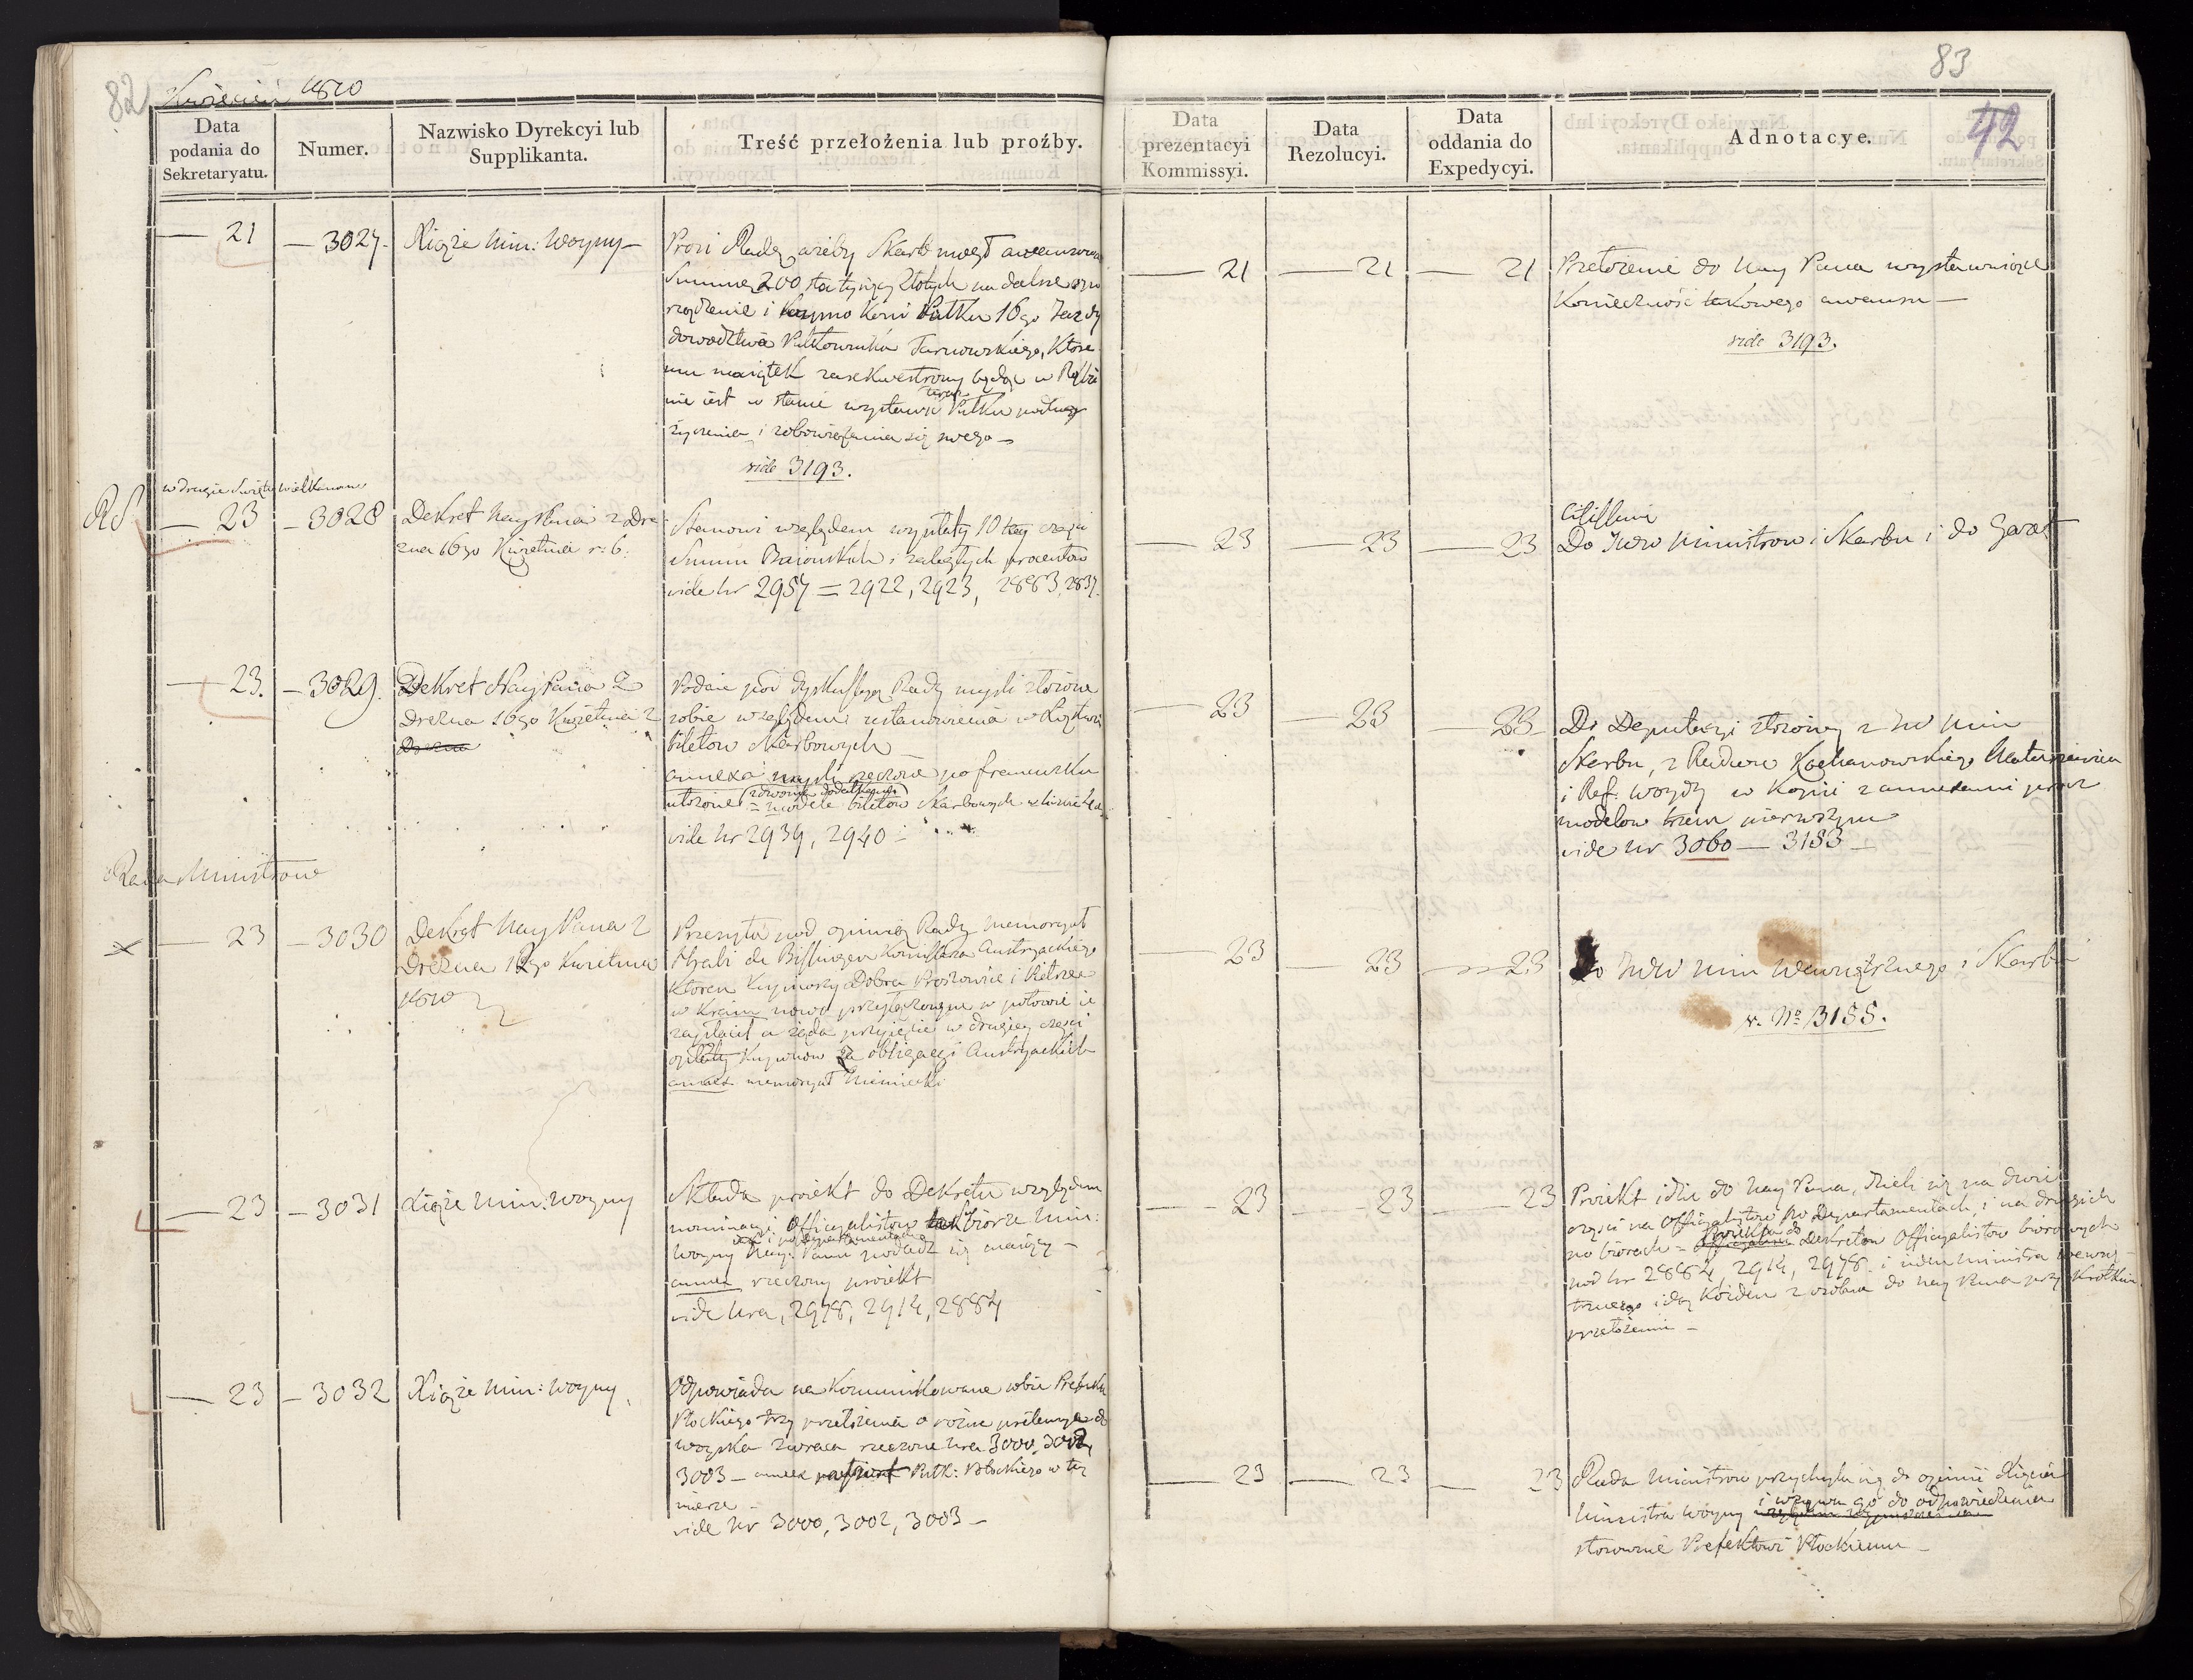 82
Kwiecień 1810
Data podania do Sekretaryatu.
Numer.
Nazwisko Dyrekcyi lub Supplikanta.
Treść przełożenia lub proźby.
21 — 3027 — Xiąże Min: Woyny —
Prosi Radę, ażeby Skarb mógł awansować
Summę 200 sta tysięcy Złotych na dalsze
rządzenie i kupno Koni Pułku 16go Jazdy
dowództwa Pułkownika Tarnowskiego, które
mu maiątek zasekwestrowany będąc w
nie iest w stanie wystawić teraz Pułku podług
życzenia i zobowiązania się swego —
vide 3193.
w drugie Swięto wielkanocne
RS
— 23 — 3028
Dekret Nay Pana z Dre
zna 16go Kwietnia r: b:
Stanowi względem wypłaty 10tey części
Summ Baiońskich i zaległych procentów
vide Nr 2957 = 2922, 2923, 2883, 2837.
— 23. — 3029.
Dekret Nay Pana z
Drezna 16go Kwietnia z
Drezna
Podaie pod dyskussyą Rady myśli złożone
sobie względem ustanowienia w Xięstwie
biletow Skarbowych —
annexa myśli rzeczone po francuzku
ułożone (z dwoma dodatkami) = modele biletow Skarbowych w liczbie
vide Nr 2939, 2940 —
Rada Ministrow
— 23 — 3030
Dekret Nay Pana z
Drezna 12go Kwietnia
1810
Przesyła pod opinią Rady memoryał
Hrabi de Bissingen Komissarza Austryackiego
Ktoren kupiwszy Dobra Proszowice i Kielce
w Kraiu nowo przyłączonym w połowie ie
zapłacił a żąda przyięcie w drugiey części
opłaty Kuponow za obligacyi Austryackich
annex memoryał Niemiecki
— 23 — 3031
Xiąże Min: Woyny
Składa proiekt do Dekretu względem
nominacyi Officyalistow w biorze Min:
Woyny i po Departamentach Nay: Panu podadź się maiący —
annex rzeczony proiekt
vide Nra, 2978, 2914, 2884
— 23 — 3032
Xiąże Min: Woyny
Odpowiada na Kommunikowane sobie Prefekta
Płockiego trzy przełożenia o różne pretensye do
woyska zwraca rzeczone Nra 3000, 3002,
3003 — annex Pułk: Płockiego w tey
mierze —
vide Nr 3000, 3002, 3003 —
83
42
Data prezentacyi Kommissyi.
Data Rezolucyi.
Data oddania do Expedycyi.
Adnotacye.
— 21 — 21 — 21
Przełożenie do Nay Pana wystawuiące
Konieczność takowego awansu —
vide 3193.
— 23 — 23 — 23
Citissime
Do JWW Ministrow i Skarbu i do Gazet
— 23 — 23 — 23
Do Deputacyi złożoney z JW Min
Skarbu, z Radców Kochanowskiego Matuszewica
i Ref. Woydy w Kopii z annexami prócz
modelow trzem pierwszym
vide Nr 3060 — 3183 —
— 23 — 23 — 23
Do JWW Min Wewnętrznego i Skarbu
v. No 3155.
— 23 — 23 — 23
Proiekt idzie do Nay Pana, dzieli się na dwie
części na Officyalistow po Departamentach, i na drugich
po biorach = Proiekta do Dekretow Officyalistow biorowych
pod Nr 2884, 2914, 2978. i ieden Ministra Wewnę
trznego idą Kożden z osobna do Nay Pana przy Krotkim
przełożeniu —
— 23 — 23 — 23
Rada Ministrow przychyla się do opinii Xięcia
Ministra Woyny i wzywa go do odpowiedzenia
stosownie Prefektowi Płockiemu —